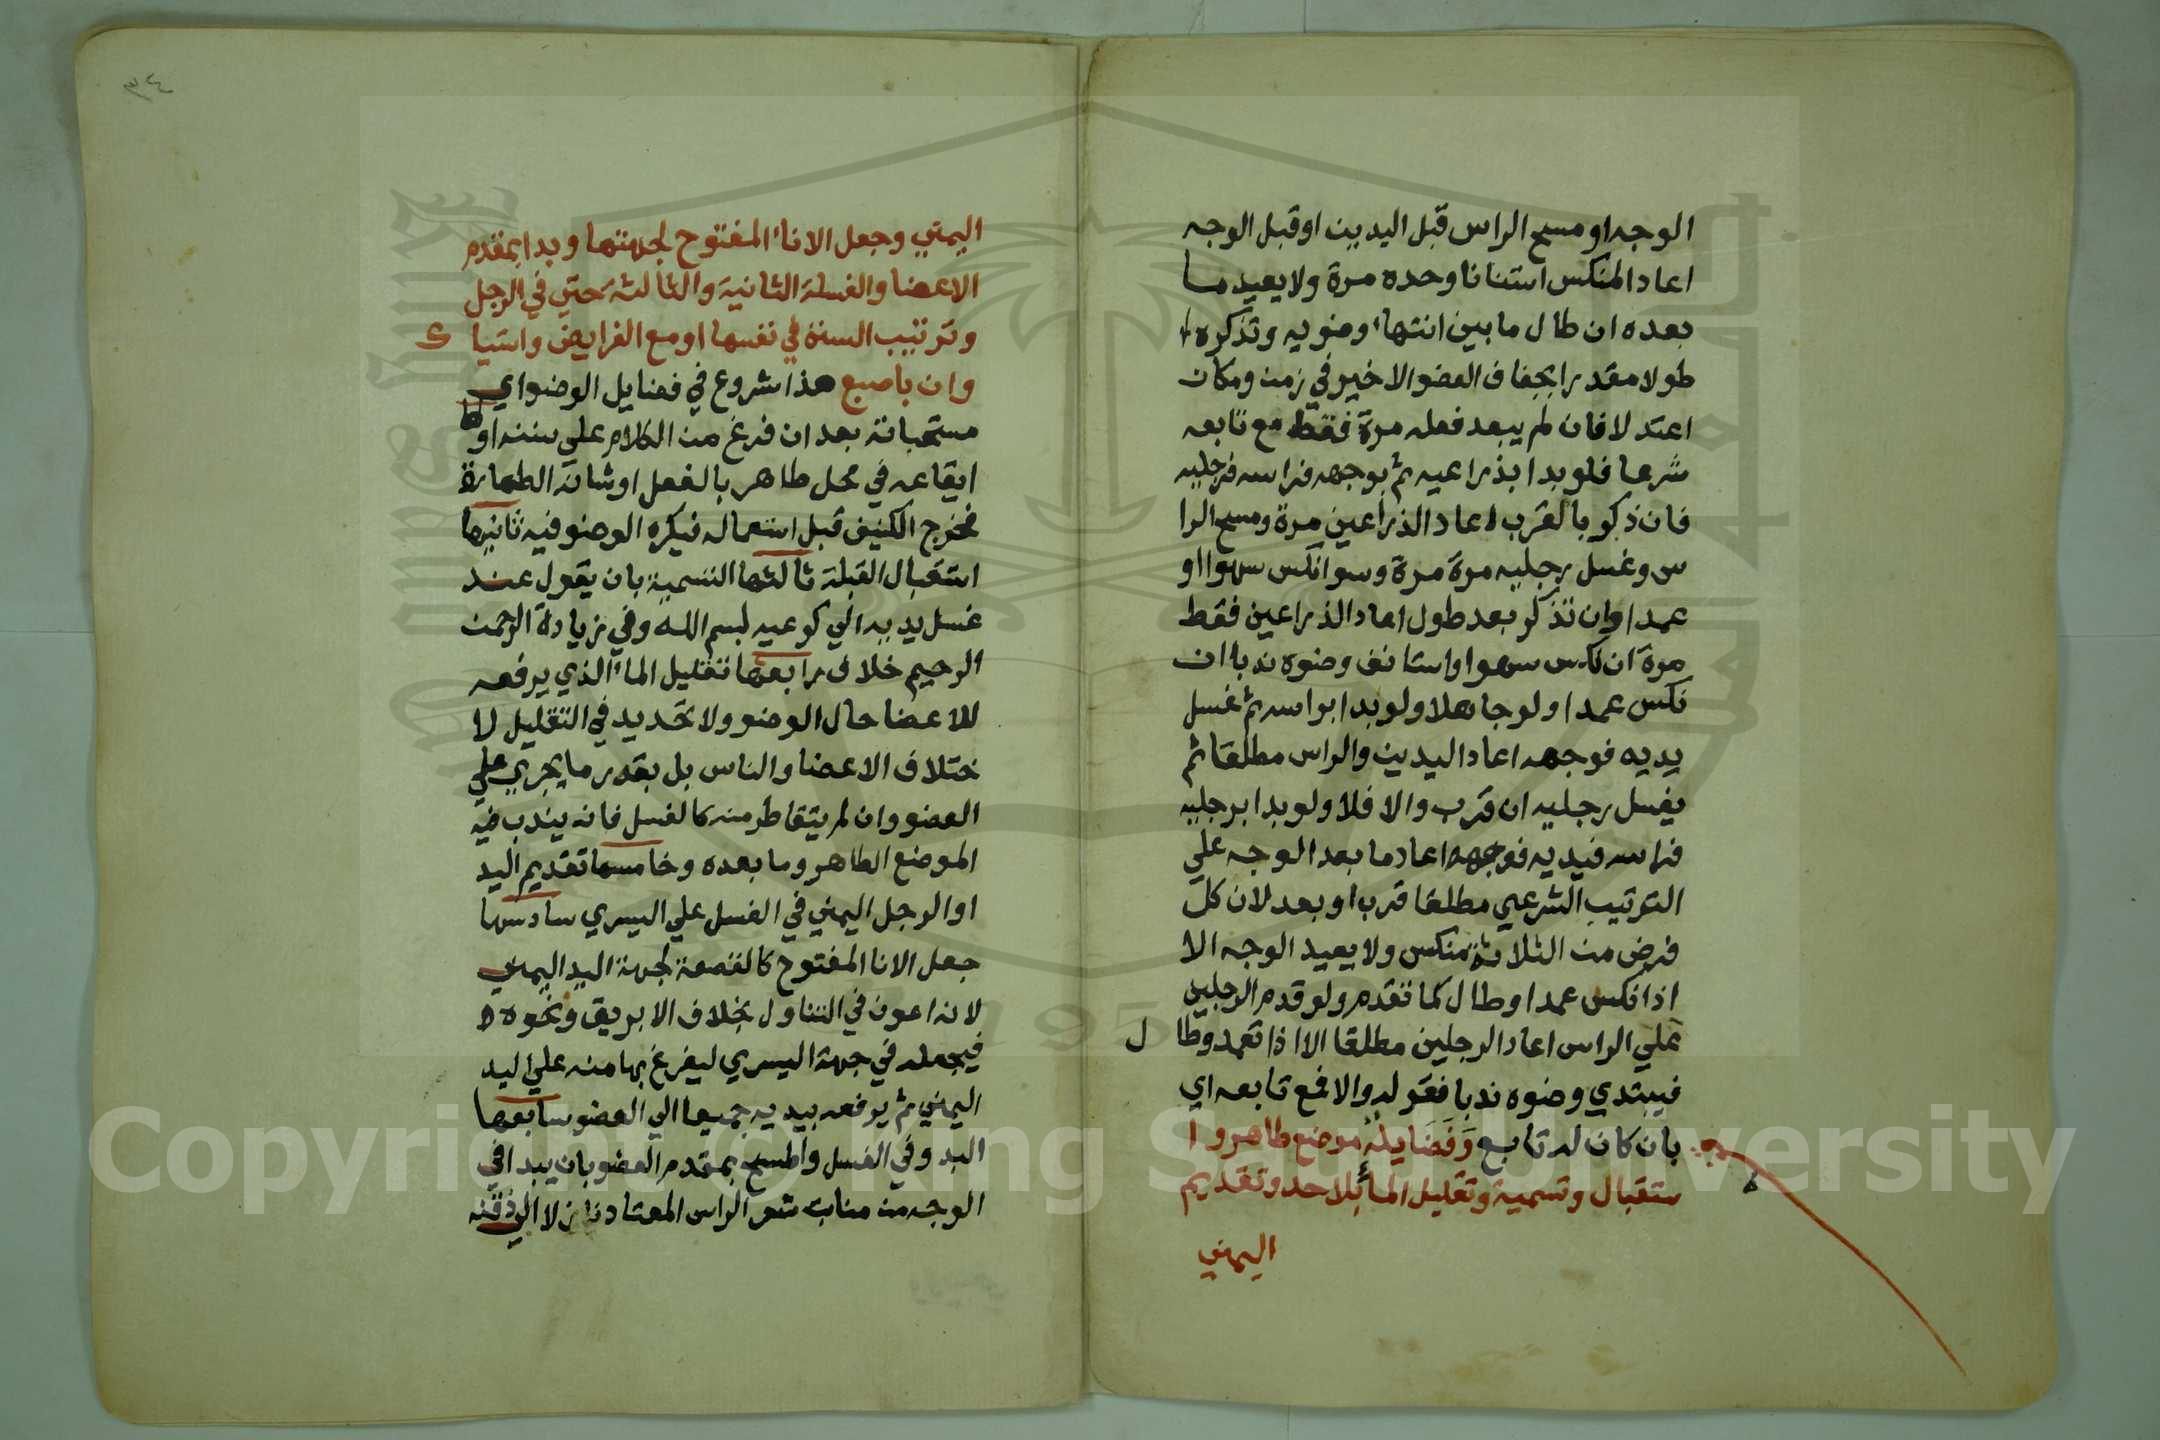 الوجه او مسح الراس قبل اليدين او قبل الوجه
اعاد المنكس استنانا وحده مرة ولا يعيد ما
بعده ان طال ما بين انتهاء وضويه وتذكره
طولا مقدرا بجفاف العضو الاخير في زمن ومكان
اعتدلا فان لم يبعد فعله مرة فقط مع تابعه
شرعا فلو بدا بذراعيه ثم بوجهه فراسه فرجليه
فان ذكر بالقرب اعاد الذراعين مرة ومسح الرا
س وغسل رجليه مرة مرة وسوا نكس سهوا او
عمدا وان تذكر بعد طول اعاد الذراعين فقط
مرة ان نكس سهوا واستانف وضوه ندبا ان
نكس عمدا ولو جاهلا ولو بدا براسه ثم غسل
يديه فوجهه اعاد اليدين والراس مطلقا ثم
يغسل رجليه ان قرب والا فلا ولو بدا برجليه
فراسه فيديه فوجهه اعاد ما بعد الوجه علي
الترتيب الشرعي مطلقا قرب او بعد لان كل
فرض من الثلاثة منكس ولا يعيد الوجه الا
اذا نكس عمدا وطال كما تقدم ولو قدم الرجلين
علي الراس اعاد الرجلين مطلقا الا اذا تعمد وطا ل
فيبتدي وضوه ندبا فقوله والا فمع تابعه اي
بان كان له تابع وَفَضَايلُهُ موضع طاهر وا
ستقبال وتسمية وتقليل الماء بلا حد وتقديم
اليمني
٣٤
اليمني وجعل الاناء المفتوح لجهتها وبدا بمقدم
الاعضا والغسلة الثانية والثالثة حتي في الرجل
وترتيب السنة في نفسها او مع الفرايض واستيا ك
وان باصبع هذا شروع في فضايل الوضو اي
مستحباته بعد ان فرغ من الكلام علي سننه اولها
ايقاعه في محل طاهر بالفعل او شانه الطهارة
فخرج الكنيف قبل استعماله فيكره الوضو فيه ثانيها
استقبال القبلة ثالثها التسمية بان يقول عند
غسل يديه الي كوعيه بسم الله وفي زيادة الرحمن
الرحيم خلاف رابعها تقليل الماء الذي يرفعه
للاعضا حال الوضو ولا تحديد في التقليل لا
ختلاف الاعضا والناس بل بقدر ما يجري علي
العضو وان لم يتقاطر منه كالغسل فانه يندب فيه
الموضع الطاهر وما بعده وخامسها تقديم اليد
او الرجل اليمني في الغسل علي اليسري سادسها
جعل الانا المفتوح كالقصعة لجهة اليد اليمني
لانه اعون في التناول بخلاف الابريق ونحوه
فيجعله في جهة اليسري ليفرغ بها منه علي اليد
اليمني ثم يرفعه بيديه جميعا الي العضو سابعها
البد وفي الغسل والمسح بمقدم العضو بان يبدا في
الوجه من منابت شعر الراس المعتاد نازلا الي ذقنه